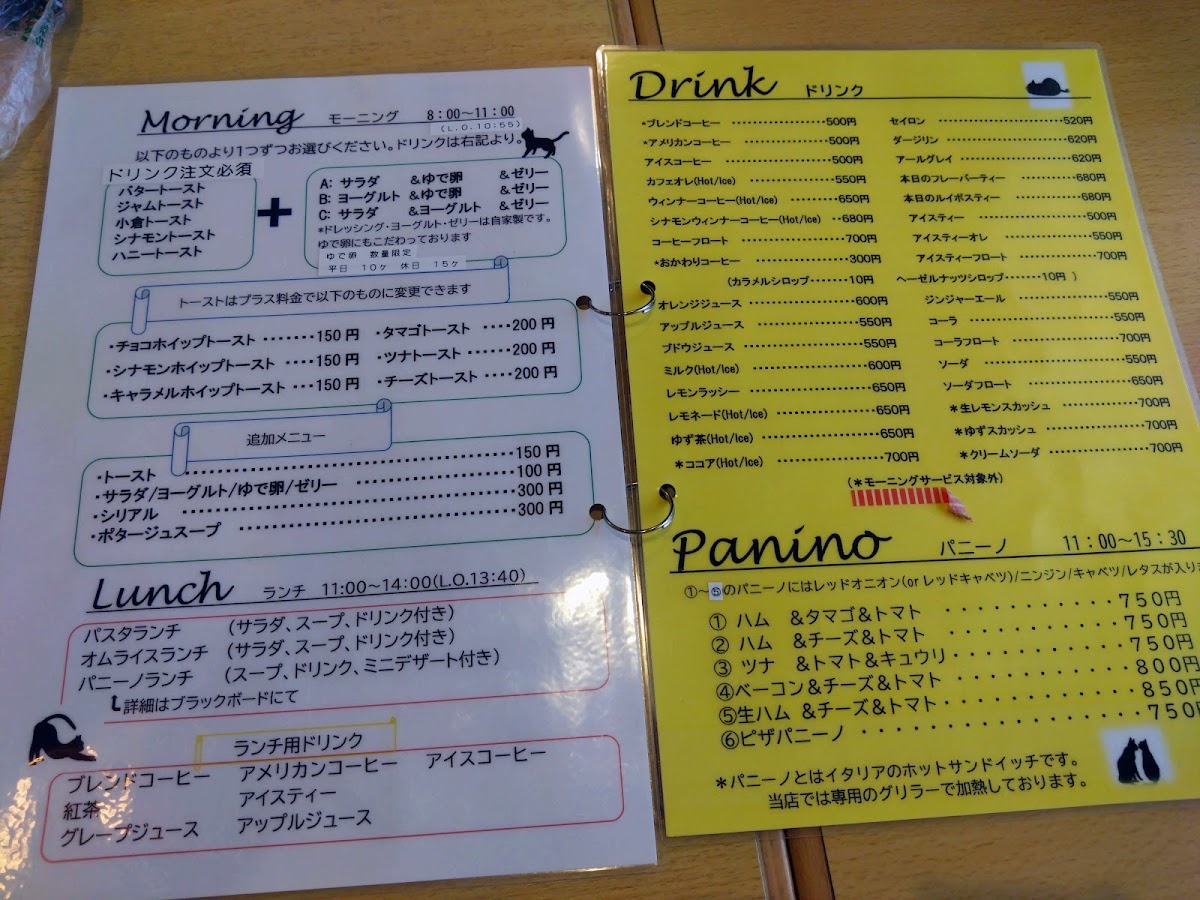 Morning モーニング 8:00～11:00
(L.O.10:55)
以下のものより1つずつお選びください。ドリンクは右記より。
ドリンク注文必須
バタートースト
ジャムトースト
小倉トースト
シナモントースト
ハニートースト
+
A: サラダ &ゆで卵 &ゼリー
B: ヨーグルト &ゆで卵 &ゼリー
C: サラダ &ヨーグルト &ゼリー
*ドレッシング・ヨーグルト・ゼリーは自家製です。
ゆで卵にもこだわっております
ゆで卵 数量限定
平日 10ヶ 休日 15ヶ
トーストはプラス料金で以下のものに変更できます
・チョコホイップトースト ・・・・・・・150円
・シナモンホイップトースト ・・・150円
・キャラメルホイップトースト ・・・150円
・タマゴトースト ・・・・200円
・ツナトースト ・・・・・・200円
・チーズトースト ・・・・200円
追加メニュー
・トースト ・・・・・・・・・・150円
・サラダ/ヨーグルト/ゆで卵/ゼリー ・・・・・・・・・・100円
・シリアル ・・・・・・・・・・300円
・ポタージュスープ ・・・・・・・・・・300円
Lunch ランチ 11:00～14:00(L.O.13:40)
パスタランチ (サラダ、スープ、ドリンク付き)
オムライスランチ (サラダ、スープ、ドリンク付き)
パニーノランチ (スープ、ドリンク、ミニデザート付き)
┗詳細はブラックボードにて
ランチ用ドリンク
ブレンドコーヒー アメリカンコーヒー アイスコーヒー
紅茶 アイスティー
グレープジュース アップルジュース
Drink ドリンク
*ブレンドコーヒー ・・・・・・・・・・500円
*アメリカンコーヒー ・・・・・・・・・・500円
アイスコーヒー ・・・・・・・・・・500円
カフェオレ(Hot/Ice) ・・・・・・・・・・550円
ウィンナーコーヒー(Hot/Ice) ・・・・・・650円
シナモンウィンナーコーヒー(Hot/Ice) ・・・680円
コーヒーフロート ・・・・・・・・・・700円
*おかわりコーヒー ・・・・・・・・・・300円
(カラメルシロップ・・・・・・・10円
オレンジジュース ・・・・・・・・・・600円
アップルジュース ・・・・・・・・・・550円
ブドウジュース ・・・・・・・・・・550円
ミルク(Hot/Ice) ・・・・・・・・・・600円
レモンラッシー ・・・・・・・・・・650円
レモネード(Hot/Ice) ・・・・・・・・・・650円
ゆず茶(Hot/Ice) ・・・・・・・・・・650円
*ココア(Hot/Ice) ・・・・・・・・・・700円
セイロン ・・・・・・・・・・520円
ダージリン ・・・・・・・・・・620円
アールグレイ ・・・・・・・・・・620円
本日のフレーバーティー ・・・・・・680円
本日のルイボスティー ・・・・・・・・680円
アイスティー ・・・・・・・・・・500円
アイスティーオレ ・・・・・・・・・・550円
アイスティーフロート ・・・・・・・・700円
ヘーゼルナッツシロップ・・・・・・10円 )
ジンジャーエール ・・・・・・・・・・550円
コーラ ・・・・・・・・・・550円
コーラフロート ・・・・・・・・・・700円
ソーダ ・・・・・・・・・・550円
ソーダフロート ・・・・・・・・・・650円
*生レモンスカッシュ ・・・・・・・・700円
*ゆずスカッシュ ・・・・・・・・・・700円
*クリームソーダ ・・・・・・・・・・700円
(*モーニングサービス対象外)
Panino パニーノ 11:00～15:30
のパニーノにはレッドオニオン(or レッドキャベツ)/ニンジン/キャベツ/レタスが入りま
① ハム &タマゴ&トマト ・・・・・・・・・・750円
② ハム &チーズ&トマト ・・・・・・・・・・750円
③ ツナ &トマト&キュウリ・・・・・・・・・・750円
④ベーコン&チーズ&トマト ・・・・・・・・・・800円
⑤生ハム &チーズ&トマト・・・・・・・・・・850円
⑥ピザパニーノ ・・・・・・・・・・750円
*パニーノとはイタリアのホットサンドイッチです。
当店では専用のグリラーで加熱しております。